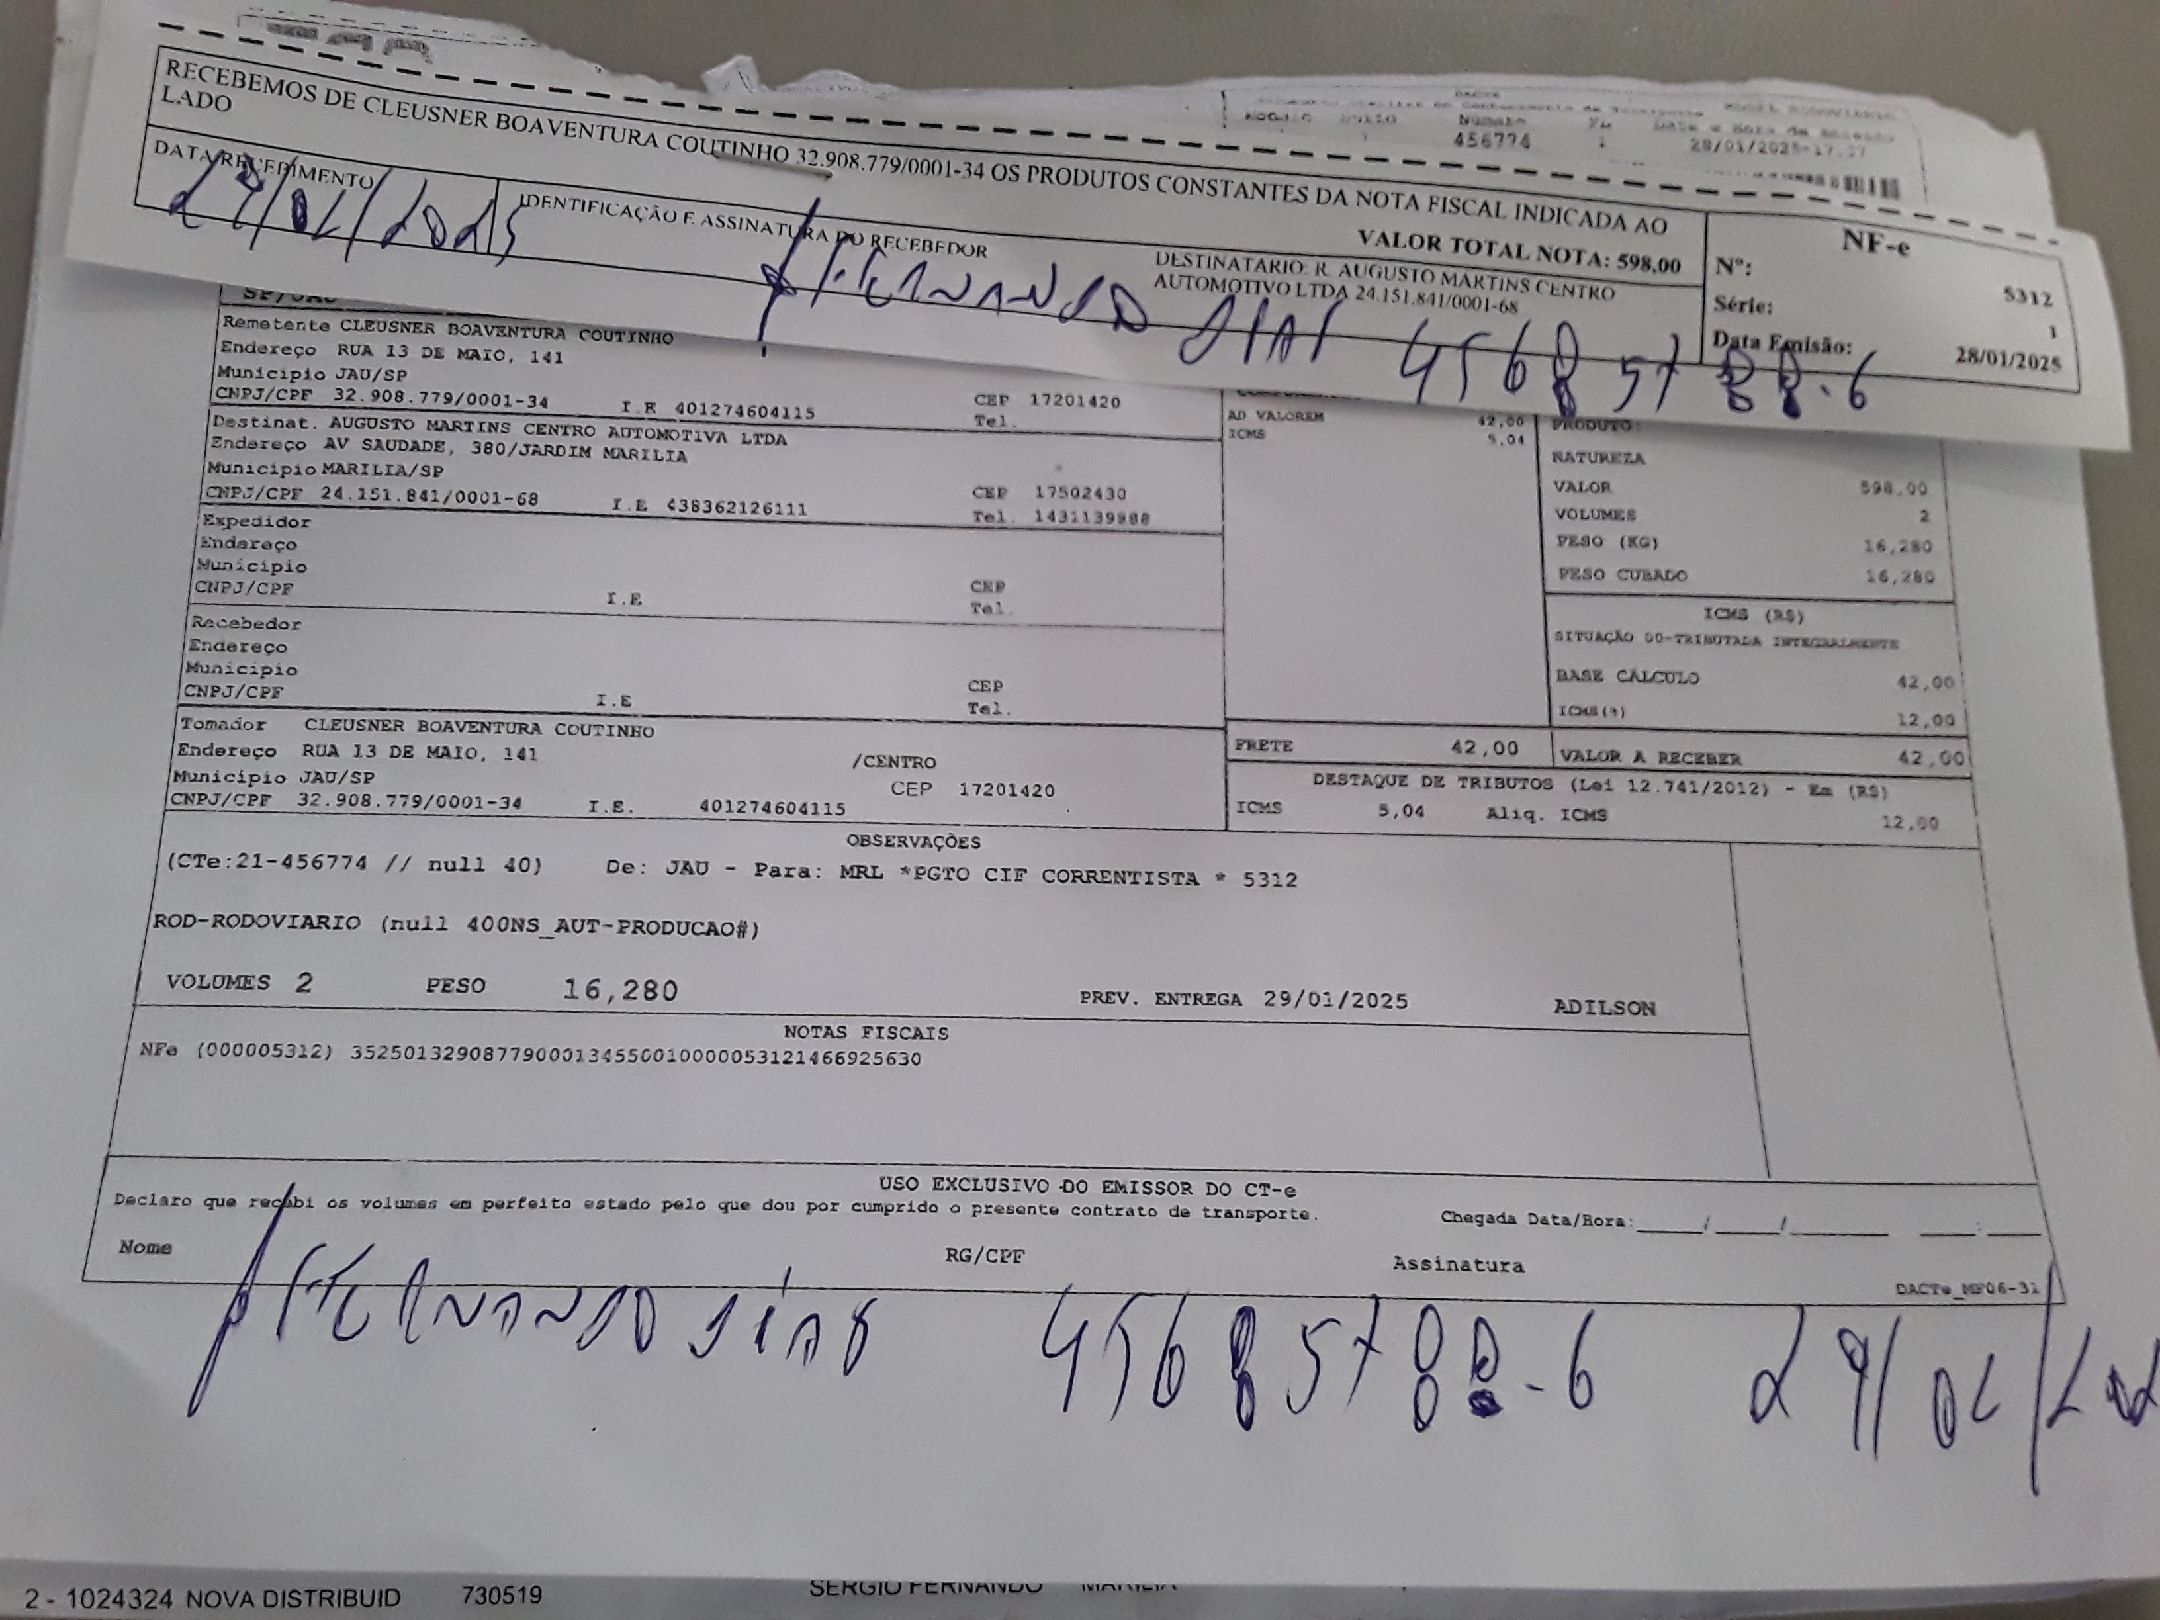 RECEBEMOS DE CLEUSNER BOAVENTURA COUTINHO 32.908.779/0001-34 OS PRODUTOS CONSTANTES DA NOTA FISCAL INDICADA AO
LADO
VALOR TOTAL NOTA: 598,00
DATA RECEBIMENTO
IDENTIFICAÇÃO E ASSINATURA DO RECEBEDOR
DESTINATARIO: R. AUGUSTO MARTINS CENTRO
AUTOMOTIVO LTDA 24.151.841/0001-68
NF-e
Nº: 5312
Série: 1
Data Emisão: 28/01/2025
FERNANDO DIAS 45685788-6
456774
1
28/01/2025-17.37
SP/JAU
Remetente CLEUSNER BOAVENTURA COUTINHO
Endereço RUA 13 DE MAIO, 141
Município JAU/SP CEP 17201420
CNPJ/CPF 32.908.779/0001-34 I.E 401274604115 Tel.
Destinat. AUGUSTO MARTINS CENTRO AUTOMOTIVA LTDA
Endereço AV SAUDADE, 380/JARDIM MARILIA
Município MARILIA/SP CEP 17502430
CNPJ/CPF 24.151.841/0001-68 I.E 438362126111 Tel. 1431139888
Expedidor
Endereço
Município CEP
CNPJ/CPF I.E Tel.
Recebedor
Endereço
Município CEP
CNPJ/CPF I.E Tel.
Tomador CLEUSNER BOAVENTURA COUTINHO
Endereço RUA 13 DE MAIO, 141 /CENTRO
Município JAU/SP CEP 17201420
CNPJ/CPF 32.908.779/0001-34 I.E. 401274604115
AD VALOREM 42,00
ICMS 5,04
PRODUTO:
NATUREZA
VALOR 598,00
VOLUMES 2
PESO (KG) 16,280
PESO CUBADO 16,280
ICMS (R$)
SITUAÇÃO 00-TRIBUTADA INTEGRALMENTE
BASE CÁLCULO 42,00
ICMS(%) 12,00
FRETE 42,00 VALOR A RECEBER 42,00
DESTAQUE DE TRIBUTOS (Lei 12.741/2012) - Em (R$)
ICMS 5,04 Aliq. ICMS 12,00
OBSERVAÇÕES
(CTe:21-456774 // null 40) De: JAU - Para: MRL *PGTO CIF CORRENTISTA * 5312
ROD-RODOVIARIO (null 400NS_AUT-PRODUCAO#)
VOLUMES 2 PESO 16,280 PREV. ENTREGA 29/01/2025 ADILSON
NOTAS FISCAIS
NFe (000005312) 35250132908779000134550010000053121466925630
USO EXCLUSIVO DO EMISSOR DO CT-e
Declaro que recebi os volumes em perfeito estado pelo que dou por cumprido o presente contrato de transporte. Chegada Data/Hora:____/____/______ ___:___
Nome RG/CPF Assinatura
DACTe_MF06-31
FERNANDO DIAS 45685788-6
2 - 1024324 NOVA DISTRIBUID 730519 SERGIO FERNANDO MARILIA